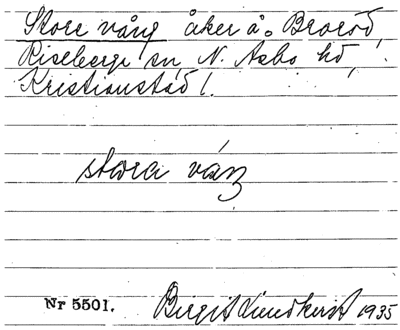 Store vång åker å. Braröd,
Riseberga sn N. Åsbo hd,
Kristianstad l.
stara váŋ
Nr 5501.
Birgit Lundkvist 1935